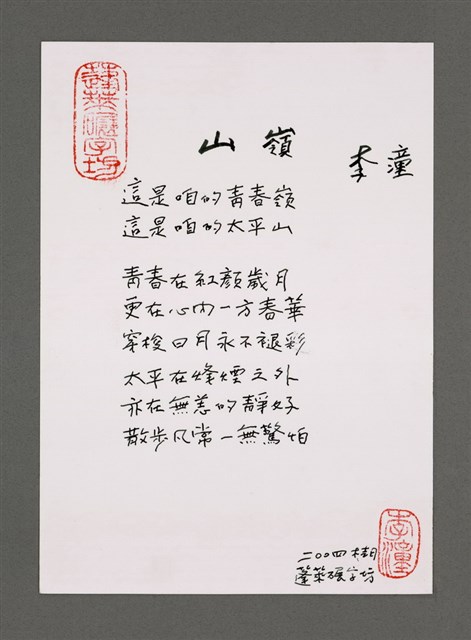 蓬萊碾字坊
山嶺
李潼
這是咱的青春嶺
這是咱的太平山
青春在紅顏歲月
更在心內一方春華
穿梭日月永不褪彩
太平在烽煙之外
亦在無恙的靜好
散步凡常一無驚怕
二〇〇四
蓬萊碾字坊
李潼